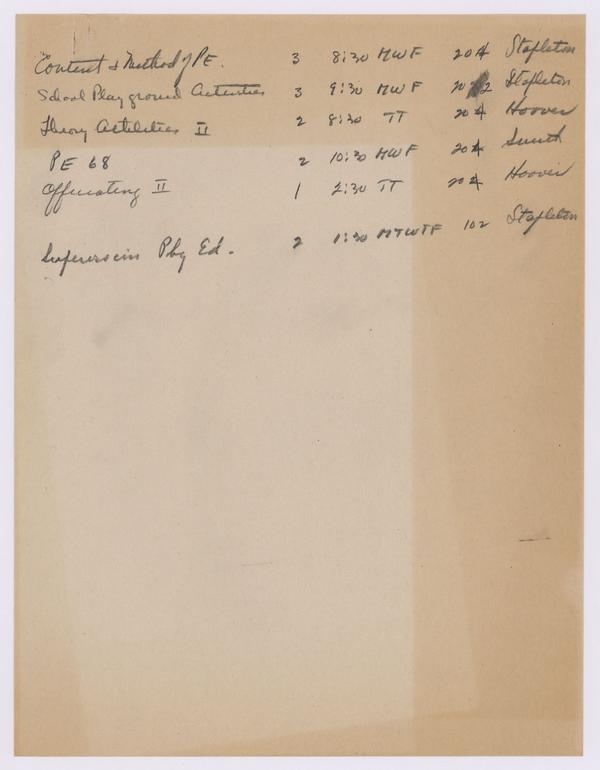 Content & Method of PE. 3 8:30 MWF 204 Stapleton
School Play ground Activities 3 9:30 MWF 202 Stapleton
Theory II 2 8:30 TT 204 Hoover
PE 68 2 10:30 MWF 204 Smith
Officiating II 1 2:30 TT 204 Hoover
Phy Ed. 2 1:30 MTWTF 102 Stapleton